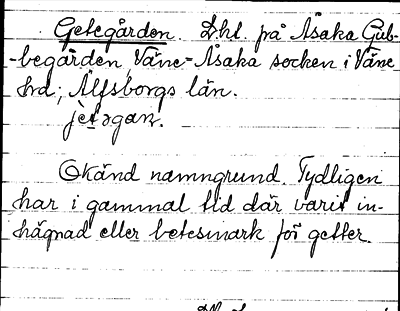 Getegården. Dkl. på Åsaka Gub-
-begården, Väne-Åsaka socken i Väne
hd; Älfsborgs län.
jètəgan.
Okänd namngrund. Tydligen
har i gammal tid där varit in-
hägnad eller betesmark för getter.